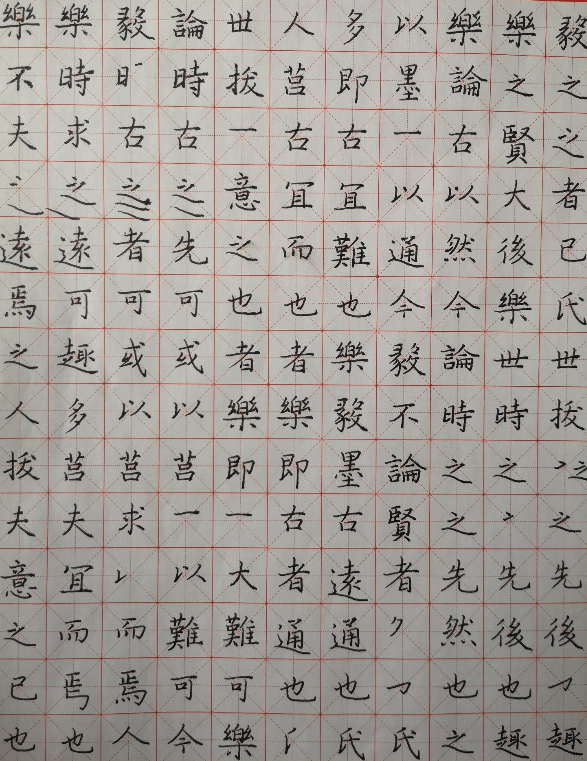 樂樂毅論世人多以樂樂毅
不時時拔莒即墨論之之
夫求古古一古古一古賢之
之之之意冝冝以以大者
遠遠者先之而難通然後已
焉可可可也也也今今樂氏
之趣或或者者樂毅論世世
人多以以樂樂毅不時時拔
拔莒莒莒即即墨論之之之
夫夫求一一古古賢之之
意冝以大者遠者先先先
之而而難難通通然後後
已焉焉可可也也也也
也也人今樂氏氏之趣趣